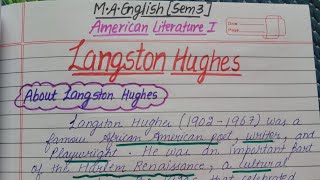 M.A. English [Sem 3]
American Literature I
Langston Hughes
About Langston Hughes
Langston Hughes (1902-1967) was a
famous African American poet, writer, and
Playwright. He was an important part
of the Harlem Renaissance, a cultural
that celebrated